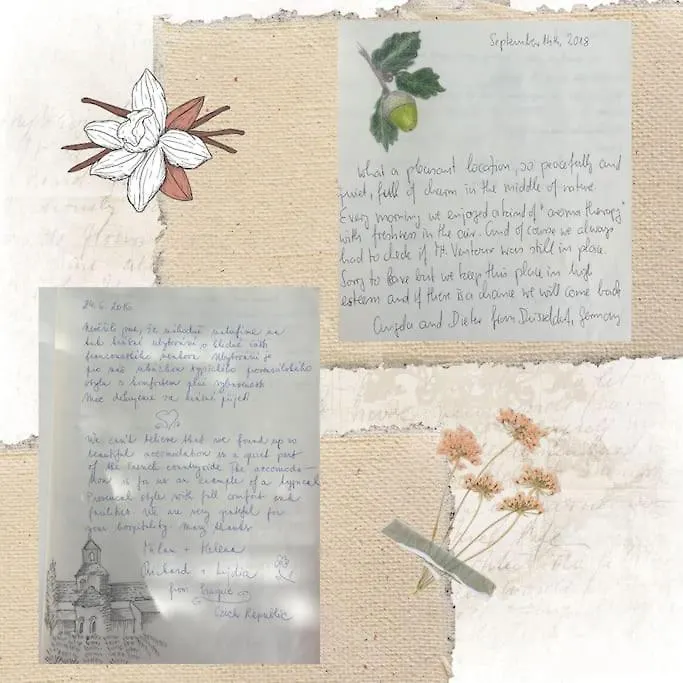 September 14th, 2018
What a pleasant location, so peacefully and
quiet, full of charm in the middle of nature.
Every morning we enjoyed a kind of "aroma therapy"
with freshness in the air. And of course we always
had to check if Mt. Ventoux was still in place.
Sorry to leave but we keep this place in high
esteem and if there is a chance we will come back
Angela and Dieter from Düsseldorf, Germany
24.6. 2016
že náhodně natrefíme na
tak krásné ubytování v klidné části
francouzského venkova. Ubytování je
pro nás ukázkou typického provensálského
stylu s komfortem plné vybavenosti
Moc děkujeme za krásné přijetí
We can't believe that we found up so
beautiful accomodation in a quiet part
of the french countryside. The accomoda-
tion is for us an example of a typical
Provencal style with full comfort and
facilities. We are very grateful for
your hospitality. Many thanks
Milan + Helena
Richard + Lýdia
from Prague
Czech Republic